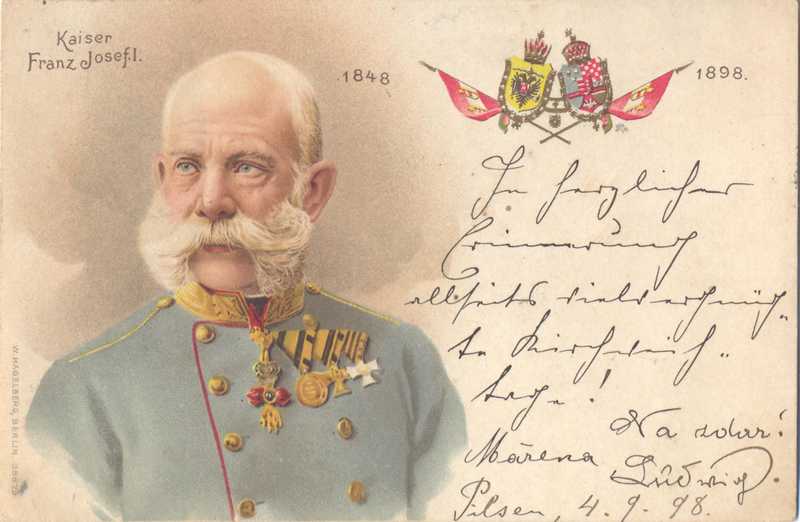 Kaiser
Franz Josef. I.
1848
1898.
In herzlicher
Erinnerung
allseits vielvergnüg„
te Kirchweih„
tage!
Na zdar!
Mařena
Ludwig.
Pilsen, 4. 9. 98.
W. HAGELBERG, BERLIN.